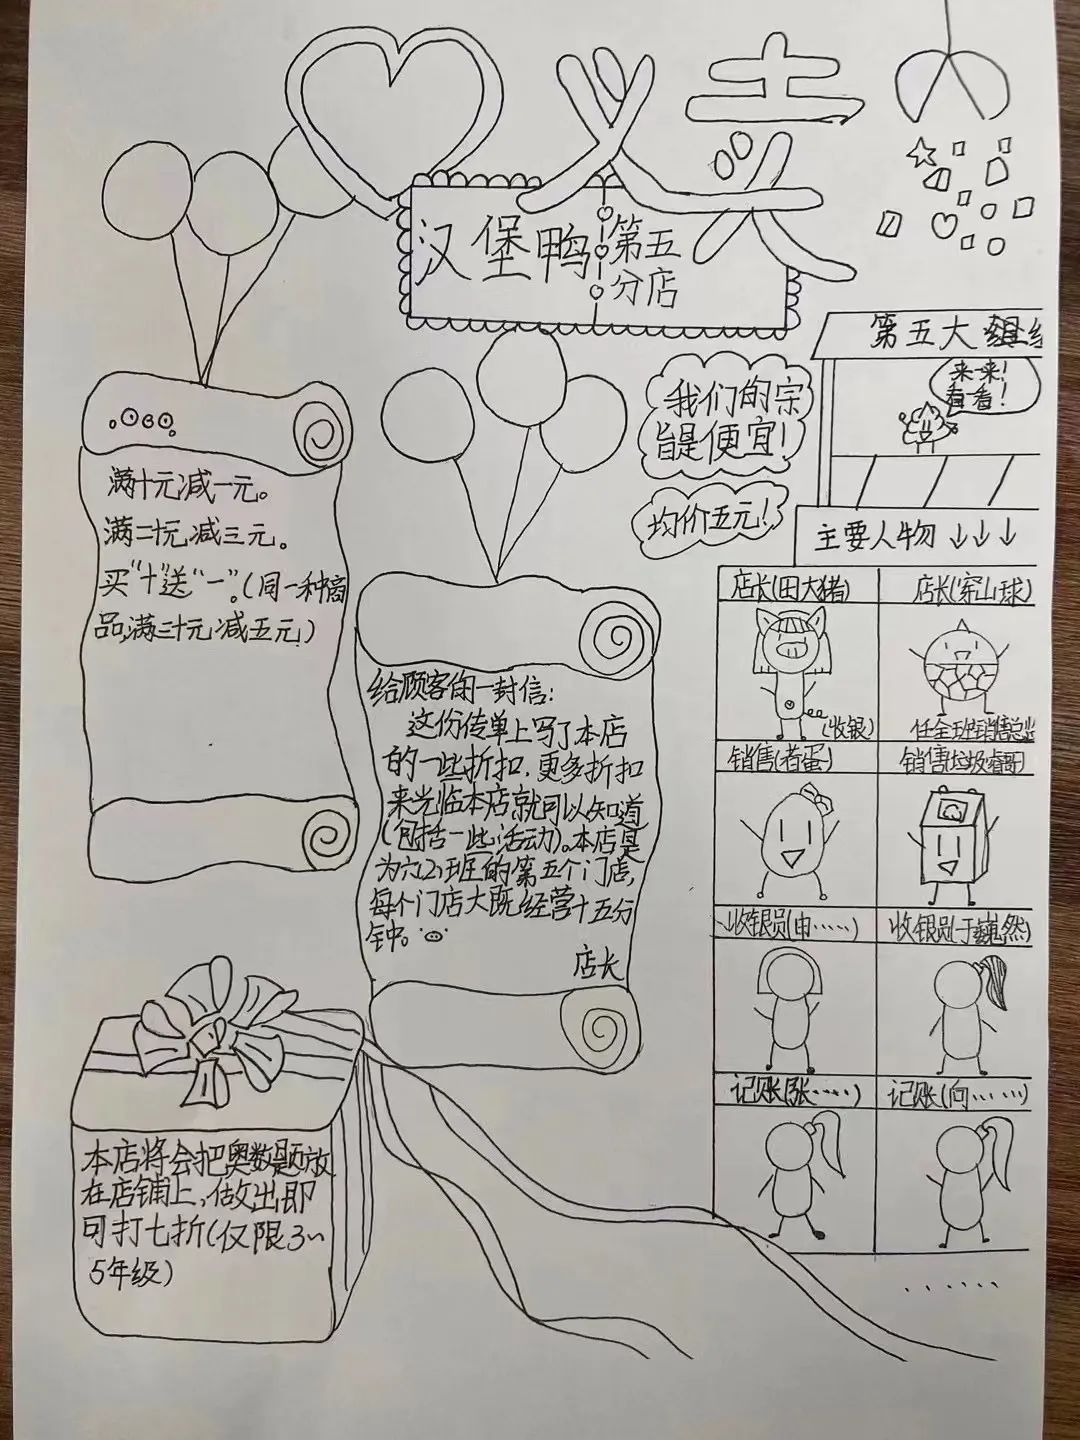 义卖
汉堡鸭
第五
分店
第五大组
来一来！
看一看！
我们的宗
旨是便宜！
均价五元！
满十元减一元。
满二十元减三元。
买“十”送“一”。（同一种商
品，满三十元减五元）
给顾客的一封信：
这份传单上写了本店
的一些折扣，更多折扣
来光临本店就可以知道
（包括一些活动）。本店是
为六（2）班的第五个门店，
每个门店大既经营十五分
钟。
店长
主要人物↓↓↓
店长（田大猪）
店长（穿山球）
（收银）
任全班销售总监
销售（若蛋）
销售（垃圾睿哥）
收银员（申……）
收银员（于巍然）
记账（张……）
记账（向……）
……
本店将会把奥数题放
在店铺上，做出即
可打七折（仅限3~
5年级）